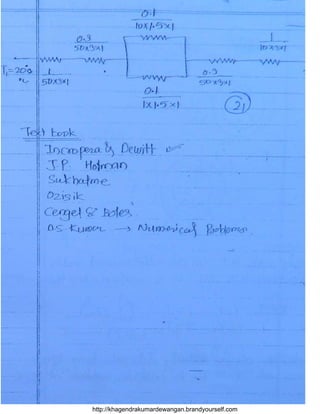 0.1
10x1.5x1
0.3
50x3x1
1
10x3x1
T1=20°
1
50x3x1
0.3
50x3x1
0.1
1x1.5x1
21
Text book
Incropera & Dewitt
J.P. Holman
Sukhatme
Ozisik
Cengel & Boles.
D.S Kumar → Numerical Problems.
http://khagendrakumardewangan.brandyourself.com